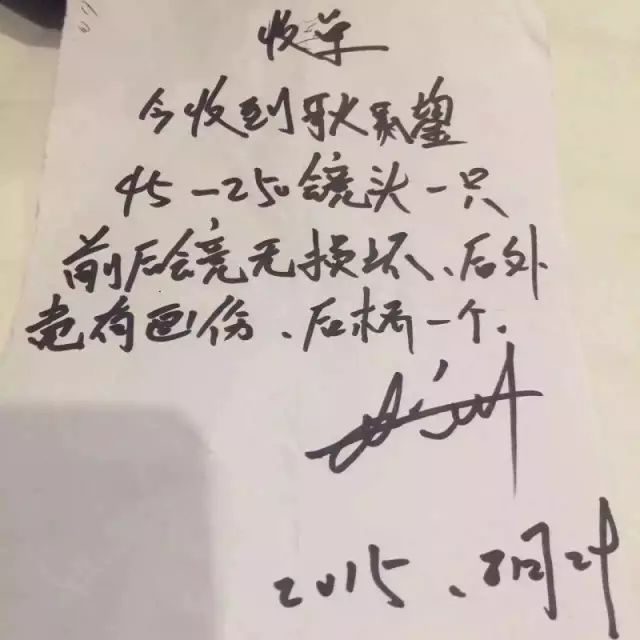 收单
今收到耿系鋆
45-250镜头一只
前后镜无损坏、后外
壳有画伤、后桥一个.
2015、8月24